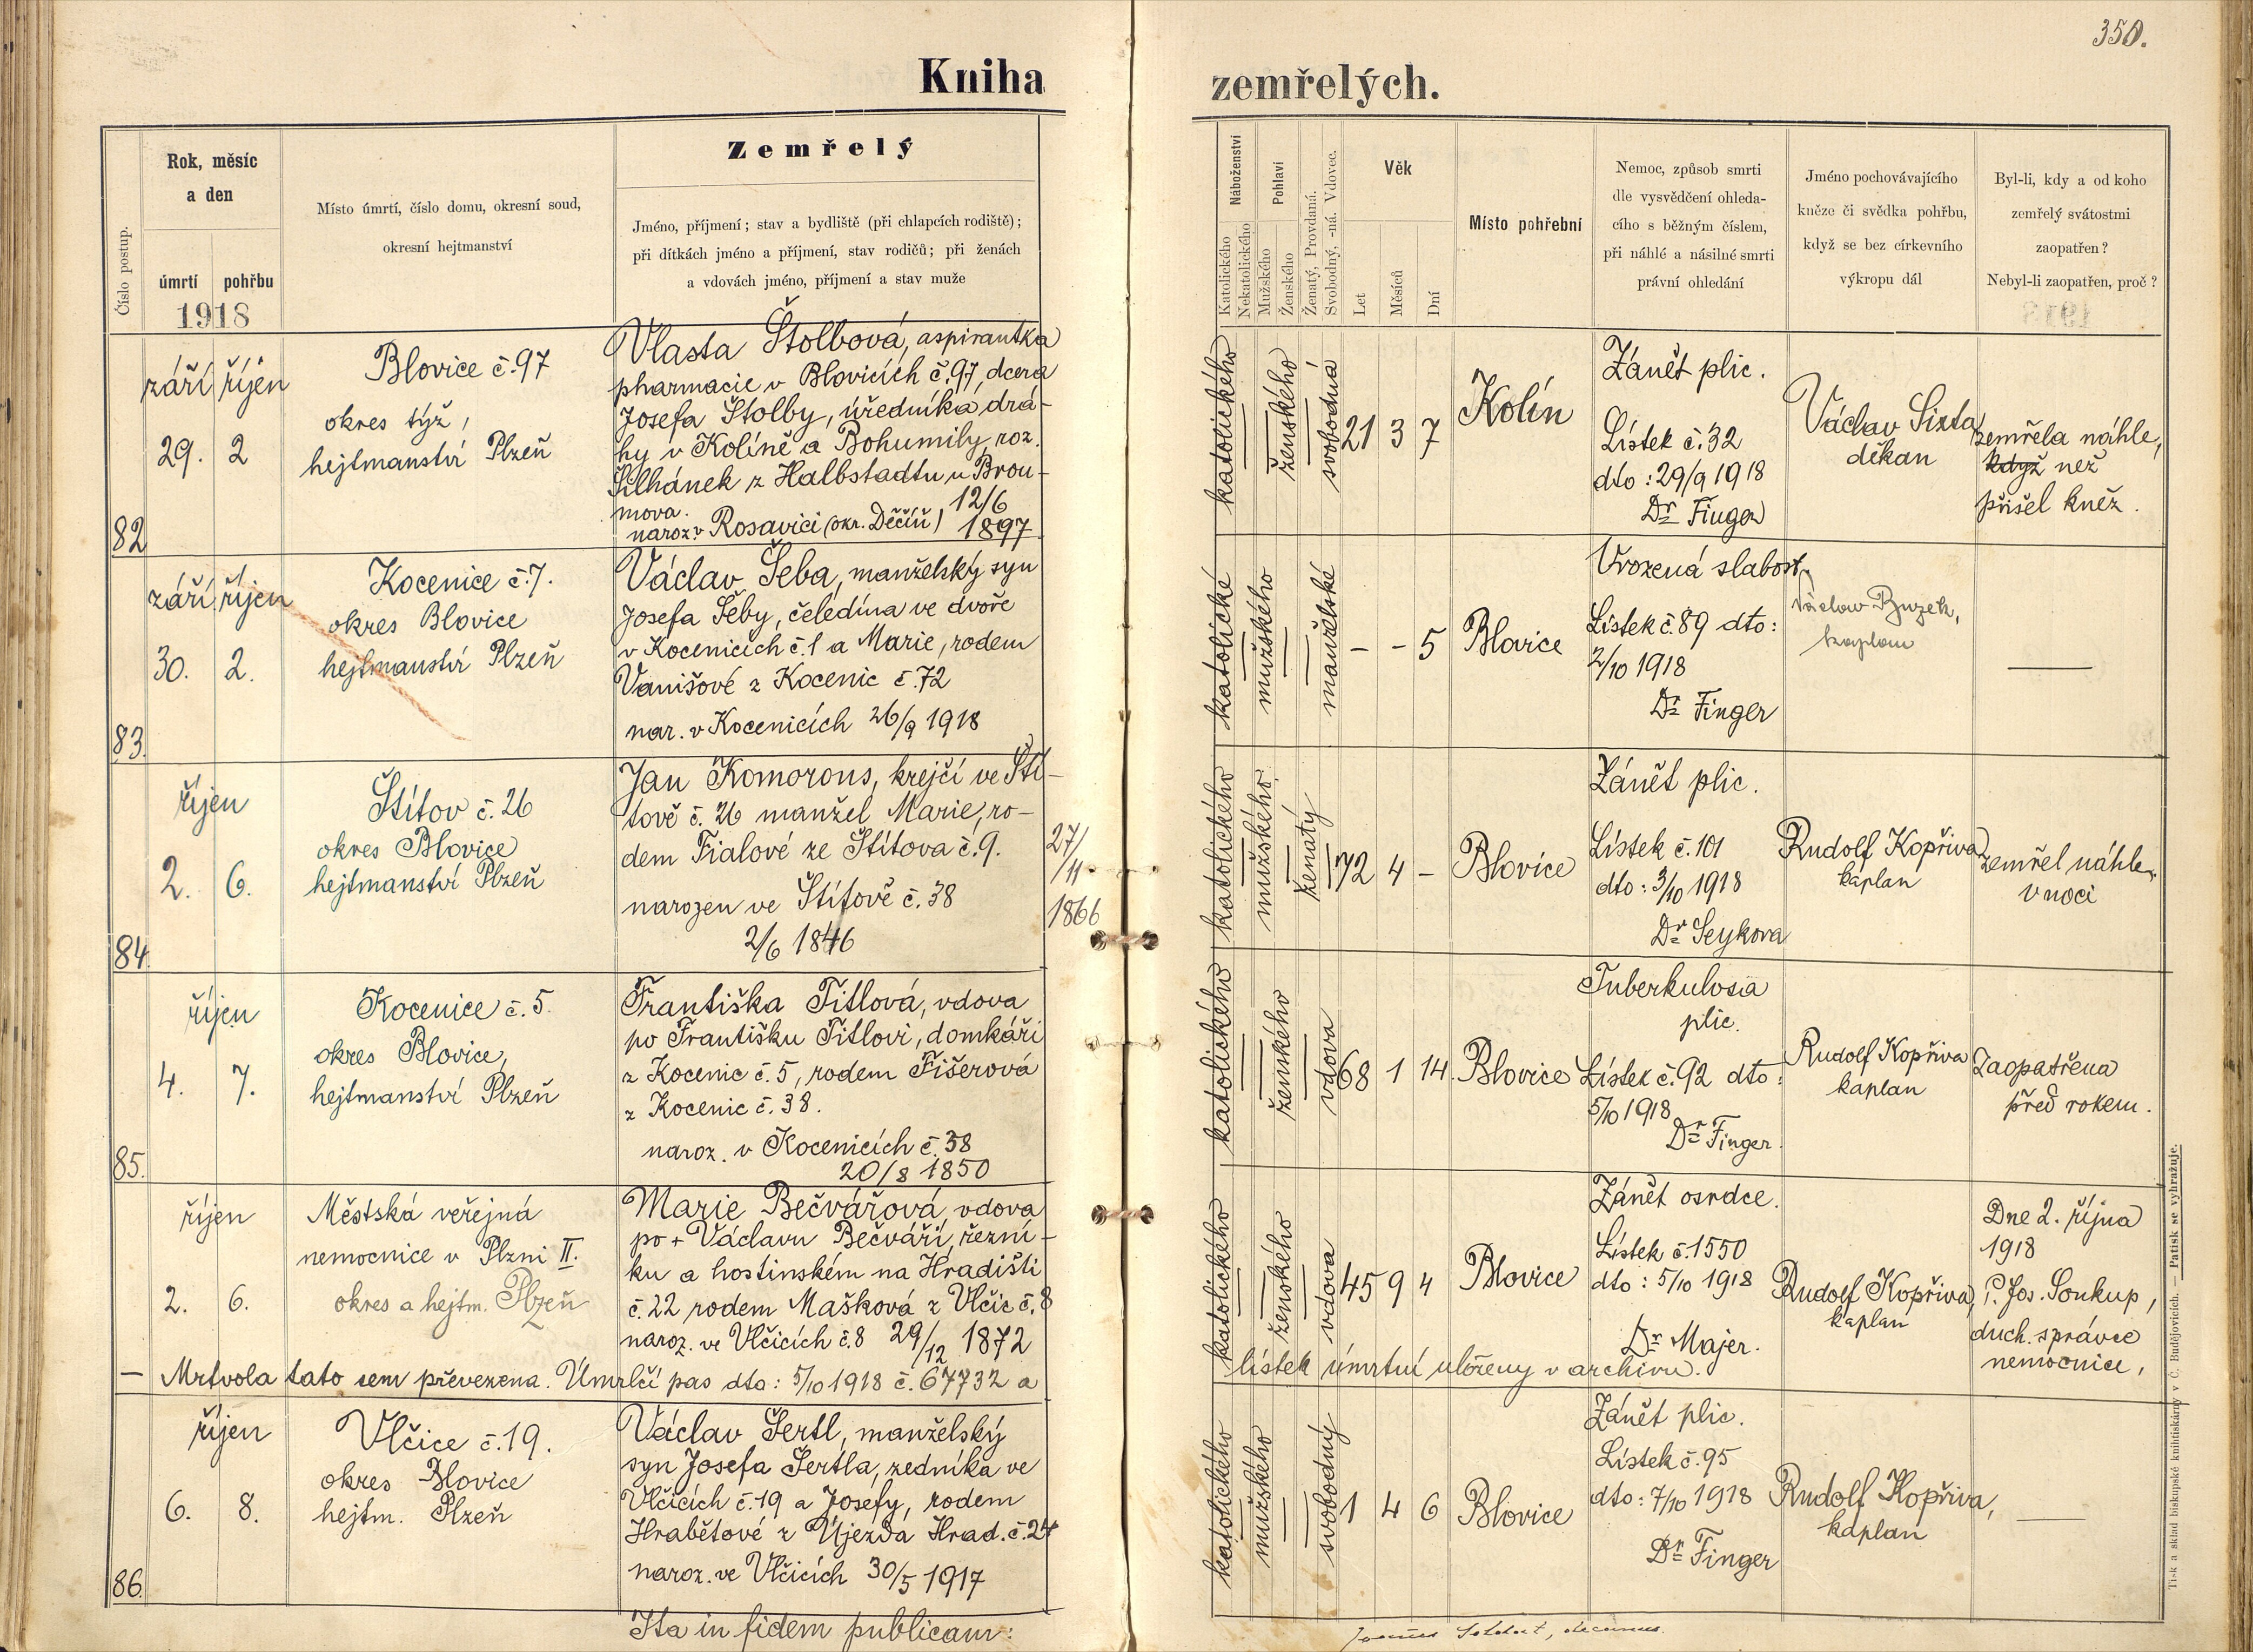 350.
Kniha zemřelých.
Číslo postup.
Rok, měsíc
a den
úmrtí pohřbu
1918
Místo úmrtí, číslo domu, okresní soud,
okresní hejtmanství
Zemřelý
Jméno, příjmení; stav a bydliště (při chlapcích rodiště);
při dítkách jméno a příjmení, stav rodičů; při ženách
a vdovách jméno, příjmení a stav muže
Náboženství
Katolického
Nekatolického
Pohlaví
Mužského
Ženského
Ženatý, Provdaná.
Svobodný, -ná. Vdovec.
Věk
Let
Měsíců
Dní
Místo pohřební
Nemoc, způsob smrti
dle vysvědčení ohleda-
cího s běžným číslem,
při náhlé a násilné smrti
právní ohledání
Jméno pochovávajícího
kněze či svědka pohřbu,
když se bez církevního
výkropu dál
Byl-li, kdy a od koho
zemřelý svátostmi
zaopatřen?
Nebyl-li zaopatřen, proč?
82
září říjen
29. 2
Blovice č. 97
okres týž,
hejtmanství Plzeň
Vlasta Štolbová, aspirantka
pharmacie v Blovicích č. 97, dcera
Josefa Štolby, úředníka drá-
hy v Kolíně a Bohumily, roz.
Šilhánek z Halbstadtu u Brou-
mova. 12/6
naroz. v Rosavici (okr. Děčín) 1897
katolického
ženského
svobodná
21 3 7
Kolín
Zánět plic.
Lístek č. 32
dto: 29/9 1918
Dr Finger
Václav Sixta
děkan
zemřela náhle,
když než
přišel kněz.
83.
září říjen
30. 2.
Kocenice č. 7.
okres Blovice
hejtmanství Plzeň
Václav Šeba, manželský syn
Josefa Šeby, čeledína ve dvoře
v Kocenicích č. 1 a Marie, rodem
Vanišové z Kocenic č. 72
nar. v Kocenicích 26/9 1918
katolické
mužského
manželské
- - 5
Blovice
Vrozená slabost
Lístek č. 89 dto:
2/10 1918
Dr Finger
Václav
kaplan
84.
říjen
2. 6.
Štítov č. 26
okres Blovice
hejtmanství Plzeň
Jan Komorous, krejčí ve Ští-
tově č. 26 manžel Marie, ro-
dem Fialové ze Štítova č. 9.
narozen ve Štítově č. 38
2/6 1846
27/
/11
1866
katolického
mužského
ženatý
72 4 -
Blovice
Zánět plic.
Lístek č. 101
dto: 3/10 1918
Dr Seykora
Rudolf Kopřiva
kaplan
zemřel náhle
v noci
85.
říjen
4. 7.
Kocenice č. 5.
okres Blovice,
hejtmanství Plzeň
Františka Titlová, vdova
po Františku Titlovi, domkáři
z Kocenic č. 5, rodem Fišerová
z Kocenic č. 38.
naroz. v Kocenicích č. 38
20/8 1850
katolického
ženského
vdova
68 1 14.
Blovice
Tuberkulosa
plic.
Lístek č. 92 dto:
5/10 1918
Dr Finger.
Rudolf Kopřiva
kaplan
Zaopatřena
před rokem.
říjen
2. 6.
Městská veřejná
nemocnice v Plzni II.
okres a hejtm. Plzeň
Marie Bečvářová, vdova
po + Václavu Bečváři, řezní-
ku a hostinském na Hradišti
č. 22 rodem Mašková z Vlčic č. 8
naroz. ve Vlčicích č. 8 29/12 1872
katolického
ženského
vdova
45 9 4
Blovice
Zánět osrdce.
Lístek č. 1550
dto: 5/10 1918
Dr Majer.
Rudolf Kopřiva,
kaplan
Dne 2. října
1918
P. Jos. Soukup,
duch. správce
nemocnice,
— Mrtvola tato sem převezena. Úmrlčí pas dto: 5/10 1918 č. 67732 a lístek úmrtní uložený v archivu.
86.
říjen
6. 8.
Vlčice č. 19.
okres Blovice
hejtm. Plzeň
Václav Šertl, manželský
syn Josefa Šertla, zedníka ve
Vlčicích č. 19 a Josefy, rodem
Hrabětové z Újezda Hrad. č. 24
naroz. ve Vlčicích 30/5 1917
katolického
mužského
svobodný
1 4 6
Blovice
Zánět plic.
Lístek č. 95
dto: 7/10 1918
Dr Finger
Rudolf Kopřiva,
kaplan
Ita in fidem publicam:
decanus.
Tisk a sklad biskupské knihtiskárny v Č. Budějovicích. — Patisk se vyhražuje.